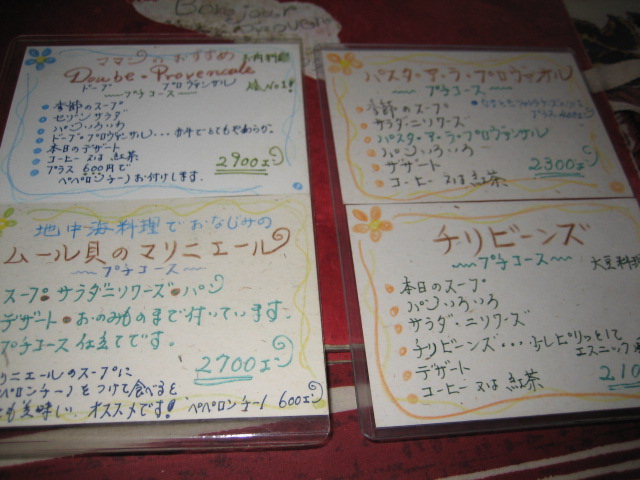 Bonjour
ママンのおすすめ お肉料理
Doube・Provencale
ドーブ プロヴァンサル No.1!
〜プチコース〜
季節のスープ
セゾンサラダ
パンいろいろ
ドーブ・プロヴァンサル...牛すじとてもやわらか。
本日のデザート
コーヒー又は紅茶
プラス600円で
ペペロンチーノお付けします。
2900エン
パスタ・ア・ラ・プロヴァンサル
〜プチコース〜
季節のスープ
サラダ・ニソワーズ
パスタ・ア・ラ・プロヴァンサル
パンいろいろ
デザート
コーヒー又は紅茶
2300エン
地中海料理でおなじみの
ムール貝のマリニエール
〜プチコース〜
スープ・サラダニソワーズ・パン
デザート・おのみものまで付いています。
プチコース仕立てです。
2700エン
リニエールのスープに
ペロンチーノをつけて食べると
も美味しい オススメです! ペペロンチーノ 600エン
チリビーンズ
〜プチコース〜 大豆料理
本日のスープ
パンいろいろ
サラダ・ニソワーズ
チリビーンズ...少しピリッとして
エスニック
デザート
コーヒー又は紅茶
210